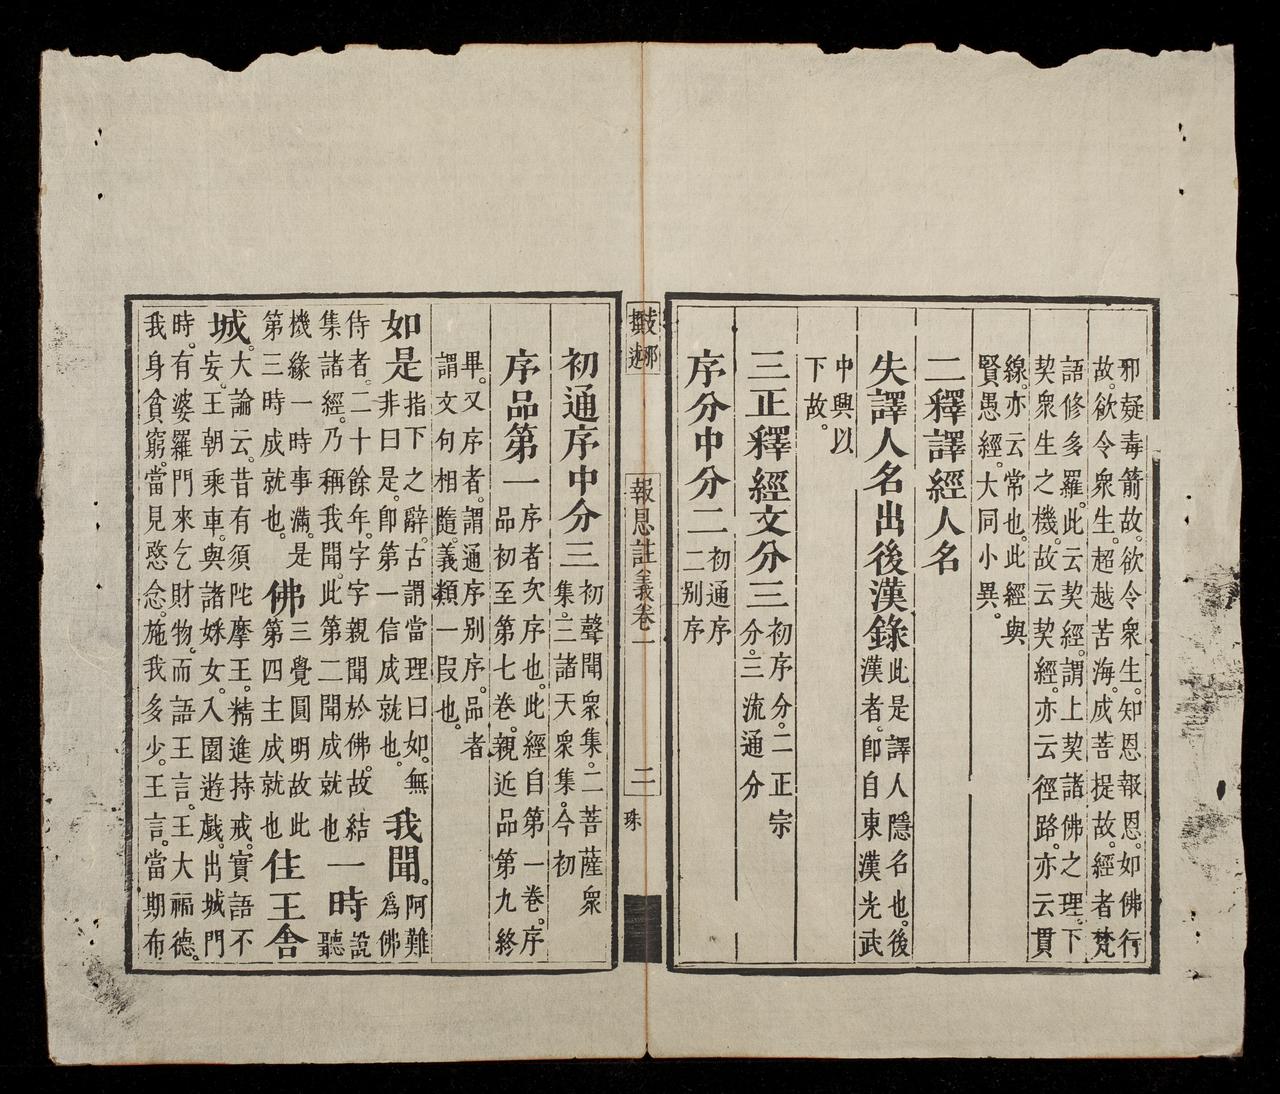 邪疑毒箭故。欲令衆生。知恩報恩。如佛行
故。欲令衆生。超越苦海。成菩提故。經者梵
語修多羅。此云契經。謂上契諸佛之理。下
契衆生之機。故云契經。亦云徑路。亦云貫
線。亦云常也。此經與
賢愚經。大同小異。
二釋譯經人名
失譯人名出後漢錄此是譯人隱名也。後
漢者。卽自東漢光武
中興以
下故。
三正釋經文分三初序分。二正宗
分。三流通分
序分中分二初通序
二別序
支那
撰述
報恩註義卷一
二
珠
初通序中分三初聲聞衆集。二菩薩衆
集。三諸天衆集。今初
序品第一序者次序也。此經自第一卷。序
品初至第七卷。親近品第九終
畢。又序者。謂通序別序。品者
謂文句相隨。義類一段也。
如是指下之辭。古謂當理曰如。無
非曰是。卽第一信成就也。我聞。阿難
爲佛
侍者。二十餘年。字字親聞於佛。故結
集諸經。乃稱我聞。此第二聞成就也一時說
聽
機緣一時事滿。是
第三時成就也。佛三覺圓明故此
第四主成就也住王舍
城。大論云。昔有須陀摩王。精進持戒。實語不
妄。王朝乘車。與諸婇女。入園遊戲。出城門
時。有婆羅門來乞財物。而語王言。王大福德。
我身貧窮。當見愍念。施我多少。王言。當期布